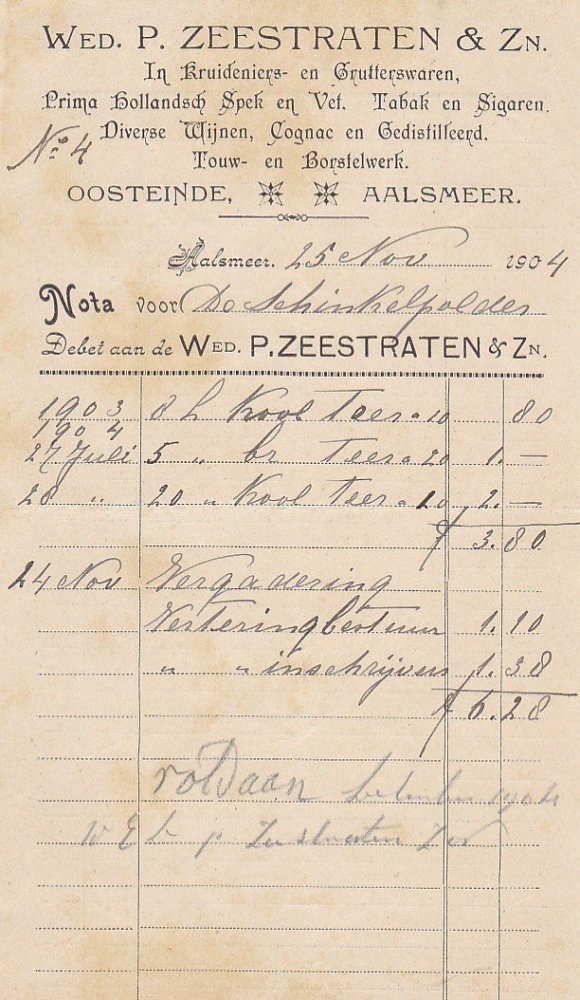 WED. P. ZEESTRATEN & ZN.
In Kruideniers- en Grutterswaren,
Prima Hollandsch Spek en Vet. Tabak en Sigaren.
Diverse Wijnen, Cognac en Gedistilleerd.
No. 4
Touw- en Borstelwerk.
OOSTEINDE, AALSMEER.
Aalsmeer. 25 Nov 1904
Nota voor De Schinkelpolder
Debet aan de WED. P. ZEESTRATEN & ZN.
1903 8 L Kool Teer a 10 80
1904
27 Juli 5 " br Teer a 20 1.—
28 " 20 " Kool Teer a 10 2.—
f 3.80
24 Nov Vergadering
Vertering bestuur 1.10
" " inschrijvers 1.38
f 6.28
voldaan 1904
W E D P Zeestraten Zn